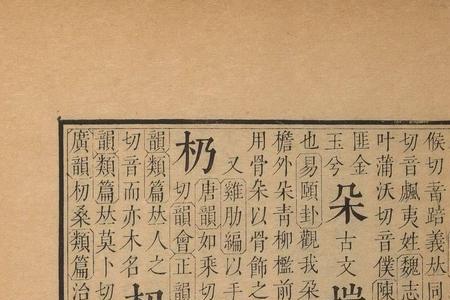 候切音踣義𠀤同
切音飊夷姓魏志
叶蒲沃切音僕陳
匪金
玉兮
朵
古文
也易頤卦觀我朵
檐外朵青柳檻前
用骨朵以骨飾之
又雞肋編以手
唐韻如乘切
切韻會正韻
韻類篇𠀤人之
切音而亦木名
韻類篇𠀤莫卜切
廣韻杒桑類篇治